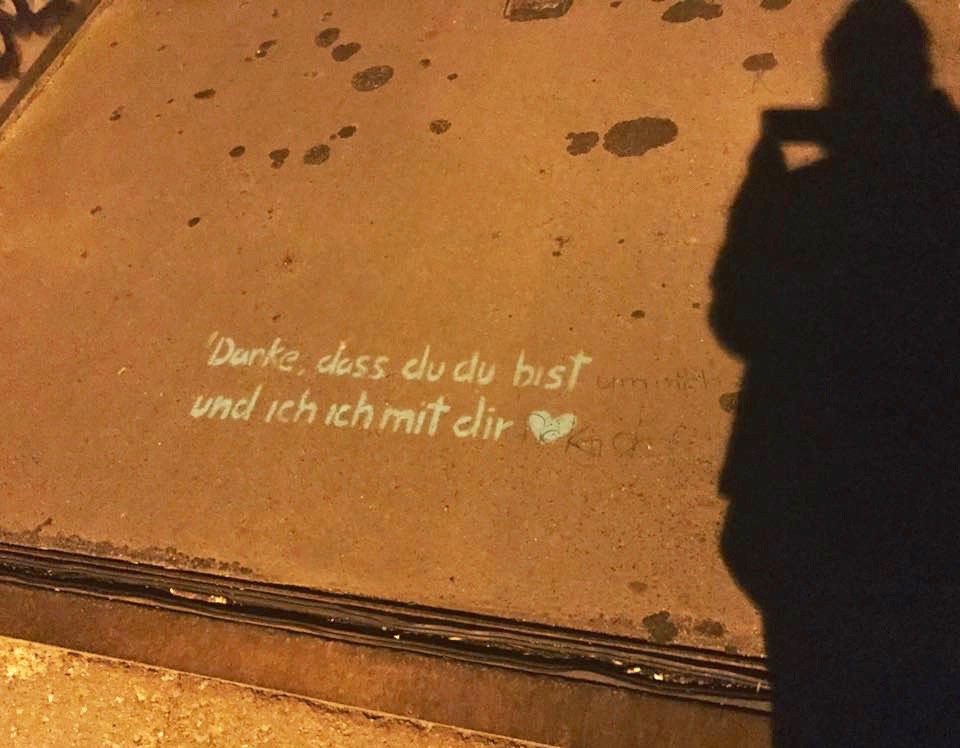 'Danke, dass du du bist
und ich ich mit dir ♥